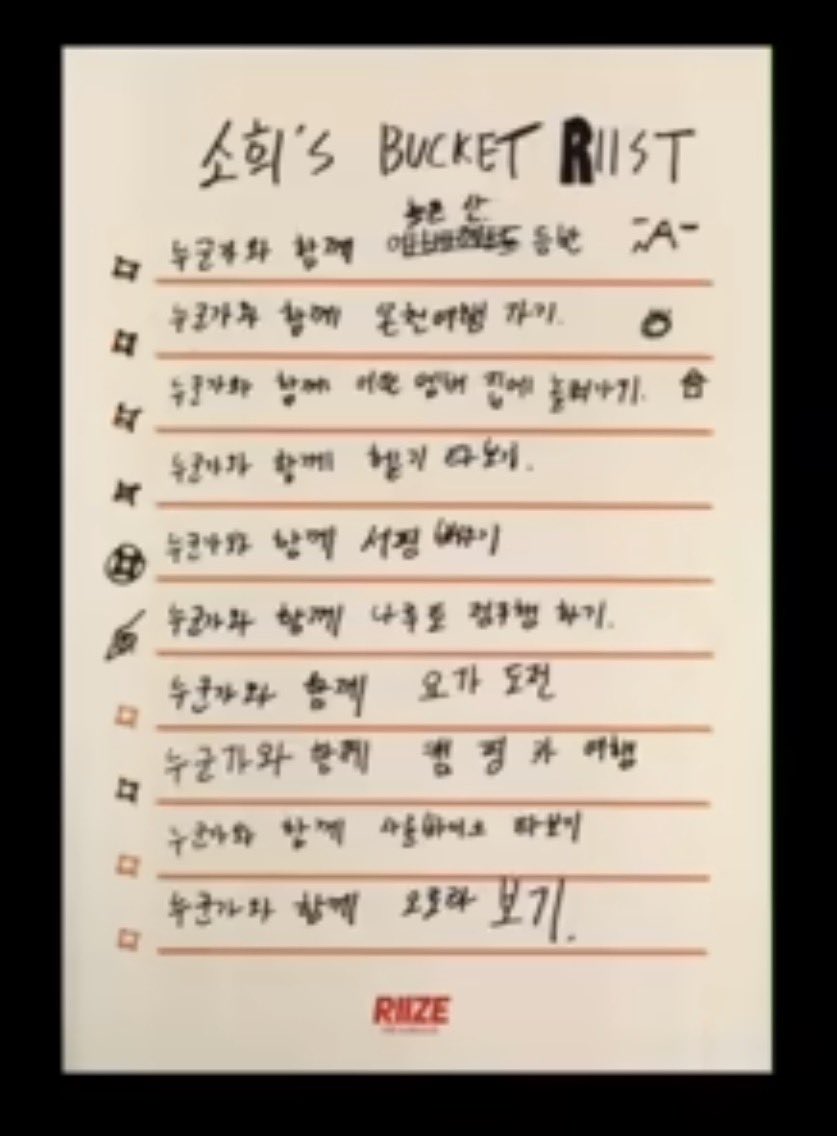 소희's BUCKET RIIST
높은 산
누군가와 함께 에베레스트 등반
누군가와 함께 온천여행 가기.
누군가와 함께 멤버 집에 놀러가기.
누군가와 함께 헬기 타보기.
누군가와 함께 서핑 배우기
누군가와 함께 나루토 정주행 하기.
누군가와 함께 요가 도전
누군가와 함께 캠핑카 여행
누군가와 함께 타보기
누군가와 함께 오로라 보기.
RIIZE